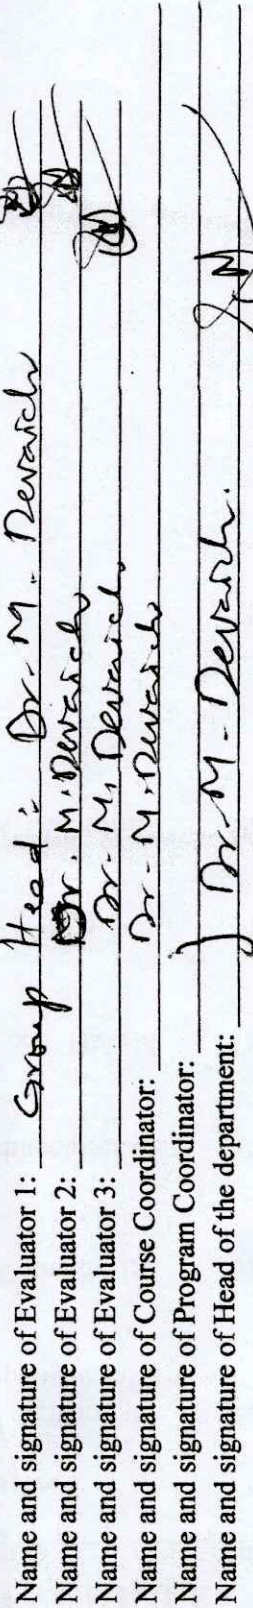 Name and signature of Evaluator 1: Group Head: Dr. M. Devaich
Name and signature of Evaluator 2: Dr. M. Devaich
Name and signature of Evaluator 3: Dr. M. Devaich
Name and signature of Course Coordinator: Dr. M. Devaich
Name and signature of Program Coordinator:
Name and signature of Head of the department: ) Dr. M. Devaich.